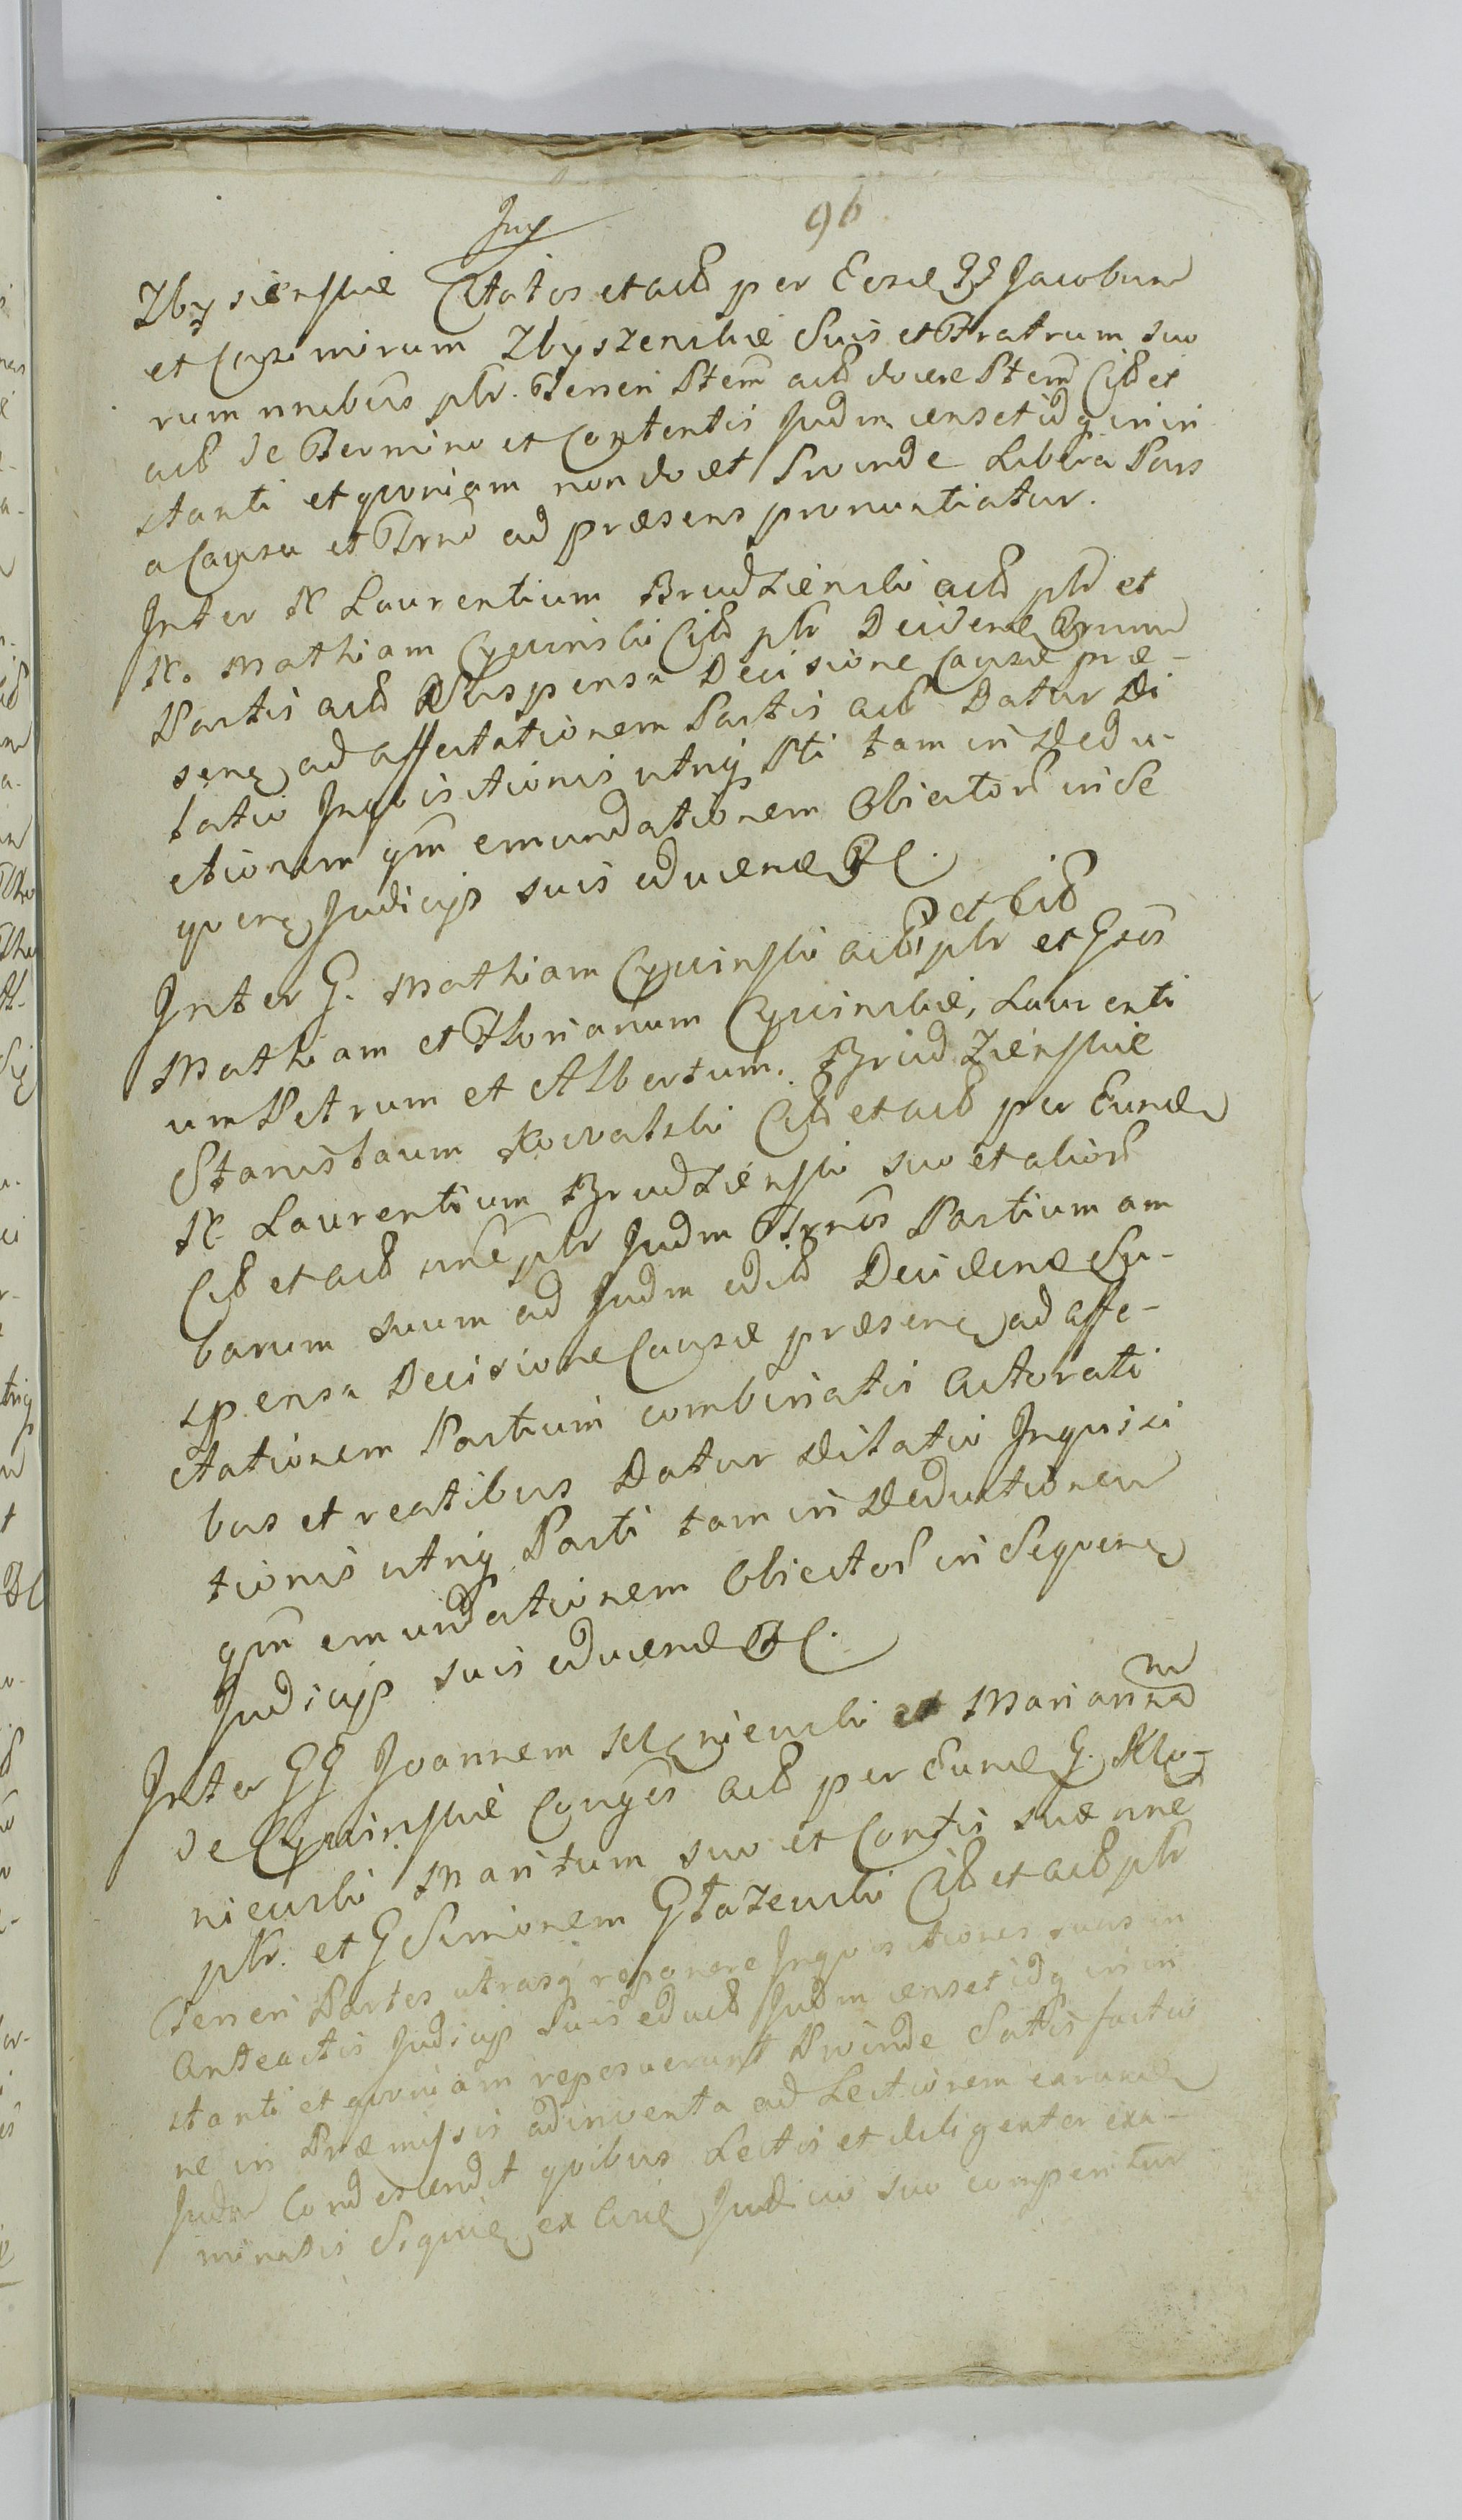 96
Zbysienskie Citatos et actō per Eosd GG Jacobum
et Casimirum Zbyszenskie Suis et Fratrum suo
rum nnibus plr. Teneri Ptem actō docere Ptem Citō et
actō de Termino et Contentis Judm censet idq in in
stanti et quoniam non docet Proinde Libera Pars
a Causa et Trno ad præsens pronuntiatur.
Inter N Laurentium Brudzienski actō plr et
N. Mathiam Cywinski Citō plr Deciden Trnum
Partis actō Suspensa Decisione Causæ præ-
senq ad affectationem Partis actō Datur Di
latio Inquisitionis utriq Pti tam in Dedu-
ctionem qm emundationem Obiector in Se
quenq Judicijs suis educend &c.
et Citō
Inter G. Mathiam Cywinski actō plr et Gsos
Mathiam et Florianum Cywinskie, Laurenti
um Petrum et Albertum. Brudzienskie
Stanisłaum Kowalski Citō et actō per Eund
N Laurentium Brudzienski suo et alior
Citō et actō nne plr Judm Trnos Partium am
barum suum ad Judm edictō Decidend Su-
spensa Decisione Causæ præsenq ad affe-
ctationem Partium combinatis Actorati
bus et reatibus Datur Dilatio Inquisi
tionis utriq Parti tam in Deductionem
qm emundationem Obiector in Sequenq
Judicijs suis educend &c.
Inter GG Joannem Kłoniecki et Mariannam
de Cywinskie Conges actō per Eund G. Kło-
niecki Maritum suo et Contis suæ nne
plr. et G Simonem Głazewski Citō et actō plr
Teneri Partes utrasq reponere Inquisitiones suas in
Anteactis Judicijs Suis eductō Judm censet idq in in
stanti et quoniam reposuerunt Proinde Satisfactio
ne in Præmissis adinventa ad Lectionem earund
Judm Condescendit quibus Lectis et diligenter exa-
minatis Siquid ex Judicio suo comperitur